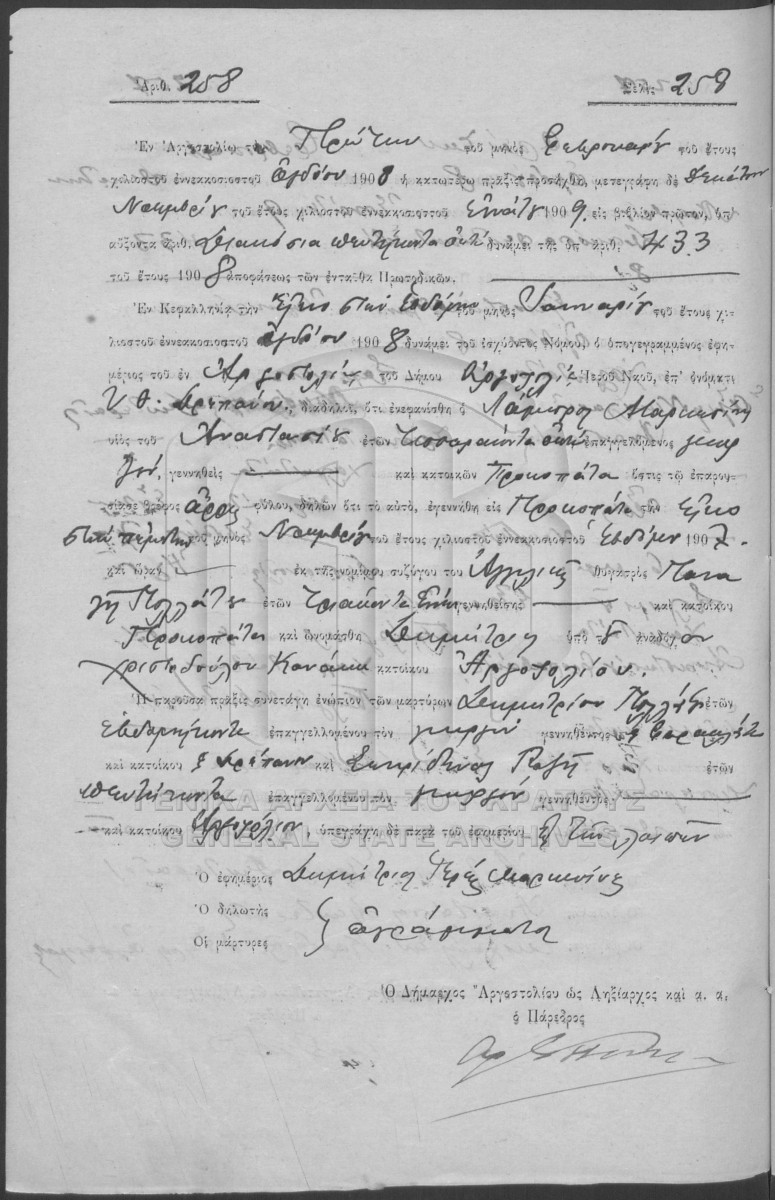 Ἀριθ. 258 Σελὶς 258
Ἐν Ἀργοστολίῳ τὴν Πρώτην τοῦ μηνὸς Φεβρουαρίου τοῦ ἔτους
χιλιοστοῦ ἐννεακοσιοστοῦ ὀγδόου 1908 ἡ κατωτέρω πρᾶξις προσήχθη, μετεγράφη δὲ Δεκάτην
Νοεμβρίου τοῦ ἔτους χιλιοστοῦ ἐννεακοσιοστοῦ Ἐννάτου 1909 εἰς βιβλίον πρῶτον, ὑπ'
αὔξοντα ἀριθ. Διακόσια πεντήκοντα ὀκτὼ δυνάμει τῆς ὑπ' ἀριθ. 733
τοῦ ἔτους 1908 ἀποφάσεως τῶν ἐνταῦθα Πρωτοδικῶν.
Ἐν Κεφαλληνίᾳ τὴν Εἰκοστὴν Ἑβδόμην τοῦ μηνὸς Ἰανουαρίου τοῦ ἔτους χι-
λιοστοῦ ἐννεακοσιοστοῦ ὀγδόου 1908 δυνάμει τοῦ ἰσχύοντος Νόμου, ὁ ὑπογεγραμμένος ἐφη-
μέριος τοῦ ἐν Ἀργοστολίῳ τοῦ Δήμου Ἀργοστολίου Ἱεροῦ Ναοῦ, ἐπ' ὀνόματι
Υ. Θ. Δρεπάνου, διαδηλοῖ, ὅτι ἐνεφανίσθη ὁ Λάμπρος Μαρκεσίνης
υἱὸς τοῦ Ἀναστασίου ἐτῶν τεσσαράκοντα ὀκτὼ ἐπαγγελόμενος γεωρ
γὸς, γεννηθεὶς — καὶ κατοικῶν Προκοπάτα ὅστις τῷ ἐπαρου-
σίασε βρέφος ἄρρεν φύλου, δηλῶν ὅτι τὸ αὐτὸ, ἐγεννήθη εἰς Προκοπάτα τὴν Εἰκο
στὴν πέμπτην τοῦ μηνὸς Νοεμβρίου τοῦ ἔτους χιλιοστοῦ ἐννεακοσιοστοῦ Ἑβδόμου 1907.
καὶ ὥραν — ἐκ τῆς νομίμου συζύγου του Ἀγγελικῆς θυγατρὸς Πανα
γῆ Πολλάτου ἐτῶν τριάκοντα γεννηθείσης — καὶ κατοίκου
Προκοπάτα καὶ ὠνομάσθη Δημήτριος ὑπὸ τοῦ ἀναδόχου
Χριστοδούλου Κανάκη κατοίκου Ἀργοστολίου.
Ἡ παροῦσα πρᾶξις συνετάγη ἐνώπιον τῶν μαρτύρων Δημητρίου Πολλάτου ἐτῶν
ἑβδομήκοντα ἐπαγγελλομένου τὸν γεωργὸν γεννηθέντος
καὶ κατοίκου Δρεπάνου καὶ Σπυρίδωνος ἐτῶν
πεντήκοντα ἐπαγγελλομένου τὸν γεωργὸν γεννηθέντος —
καὶ κατοίκου Ἀργοστολίου, ὑπεγράφη δὲ παρὰ τοῦ ἐφημερίου τῶν λοιπῶν
Ὁ ἐφημέριος Δημήτριος Ἱερεὺς Μαρκεσίνης
Ὁ δηλωτὴς
Οἱ μάρτυρες } ἀγράμματοι
Ὁ Δήμαρχος Ἀργοστολίου ὡς Ληξίαρχος καὶ α. α.
ὁ Πάρεδρος
ΓΕΝΙΚΑ ΑΡΧΕΙΑ ΤΟΥ ΚΡΑΤΟΥΣ
GENERAL STATE ARCHIVES